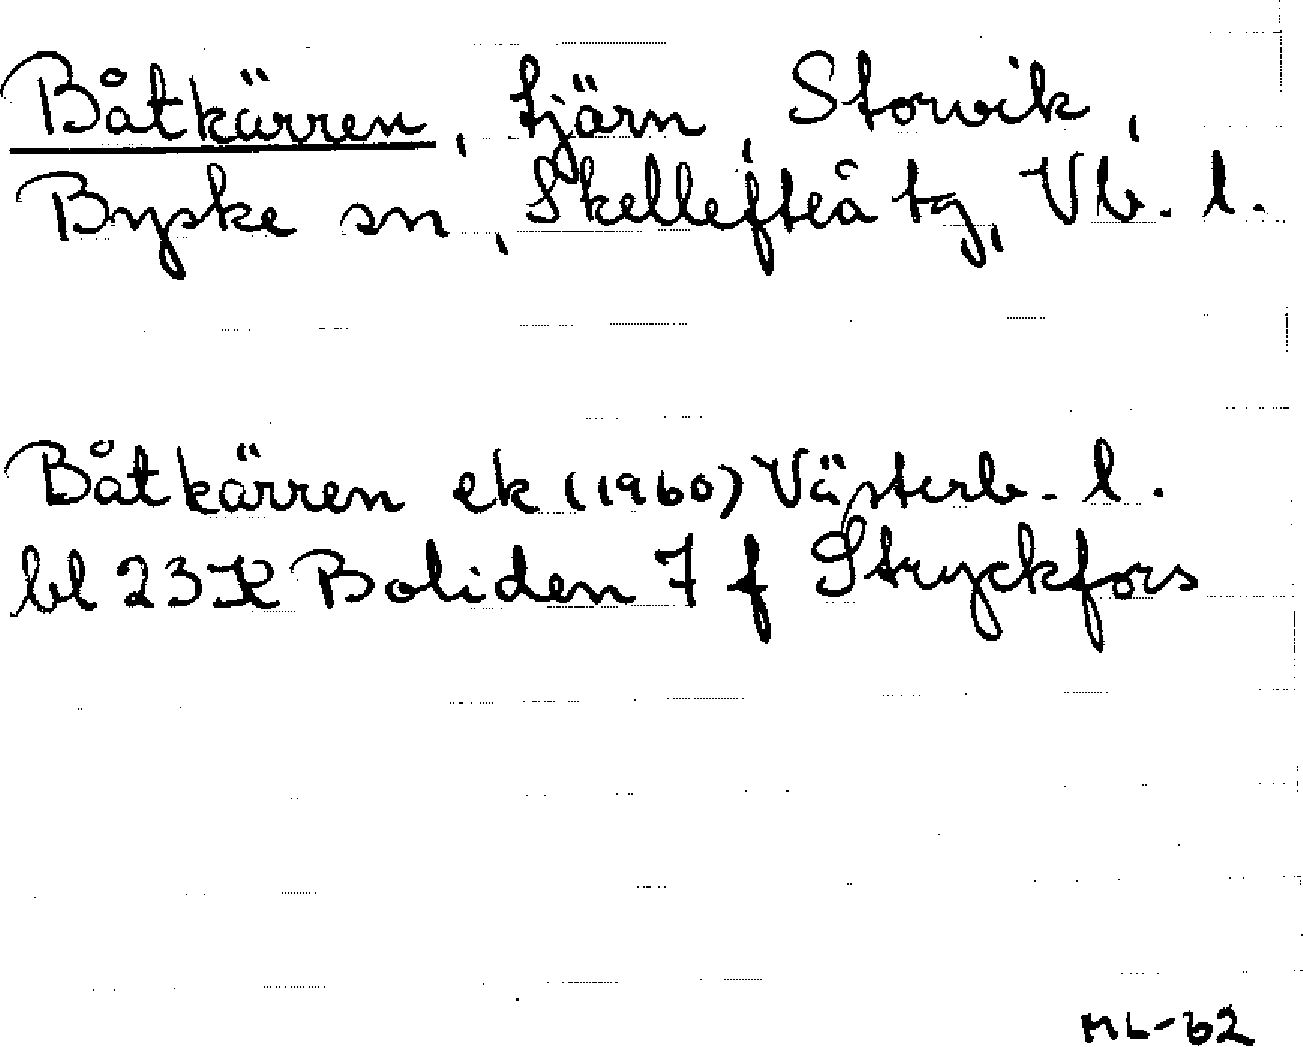 Båtkärren, tjärn, Storvik,
Byske sn, Skellefteå tg, Vb. l.
Båtkärren ek (1960) Västerb. l.
bl 23 K Boliden 7 f Stryckfors
ML-62